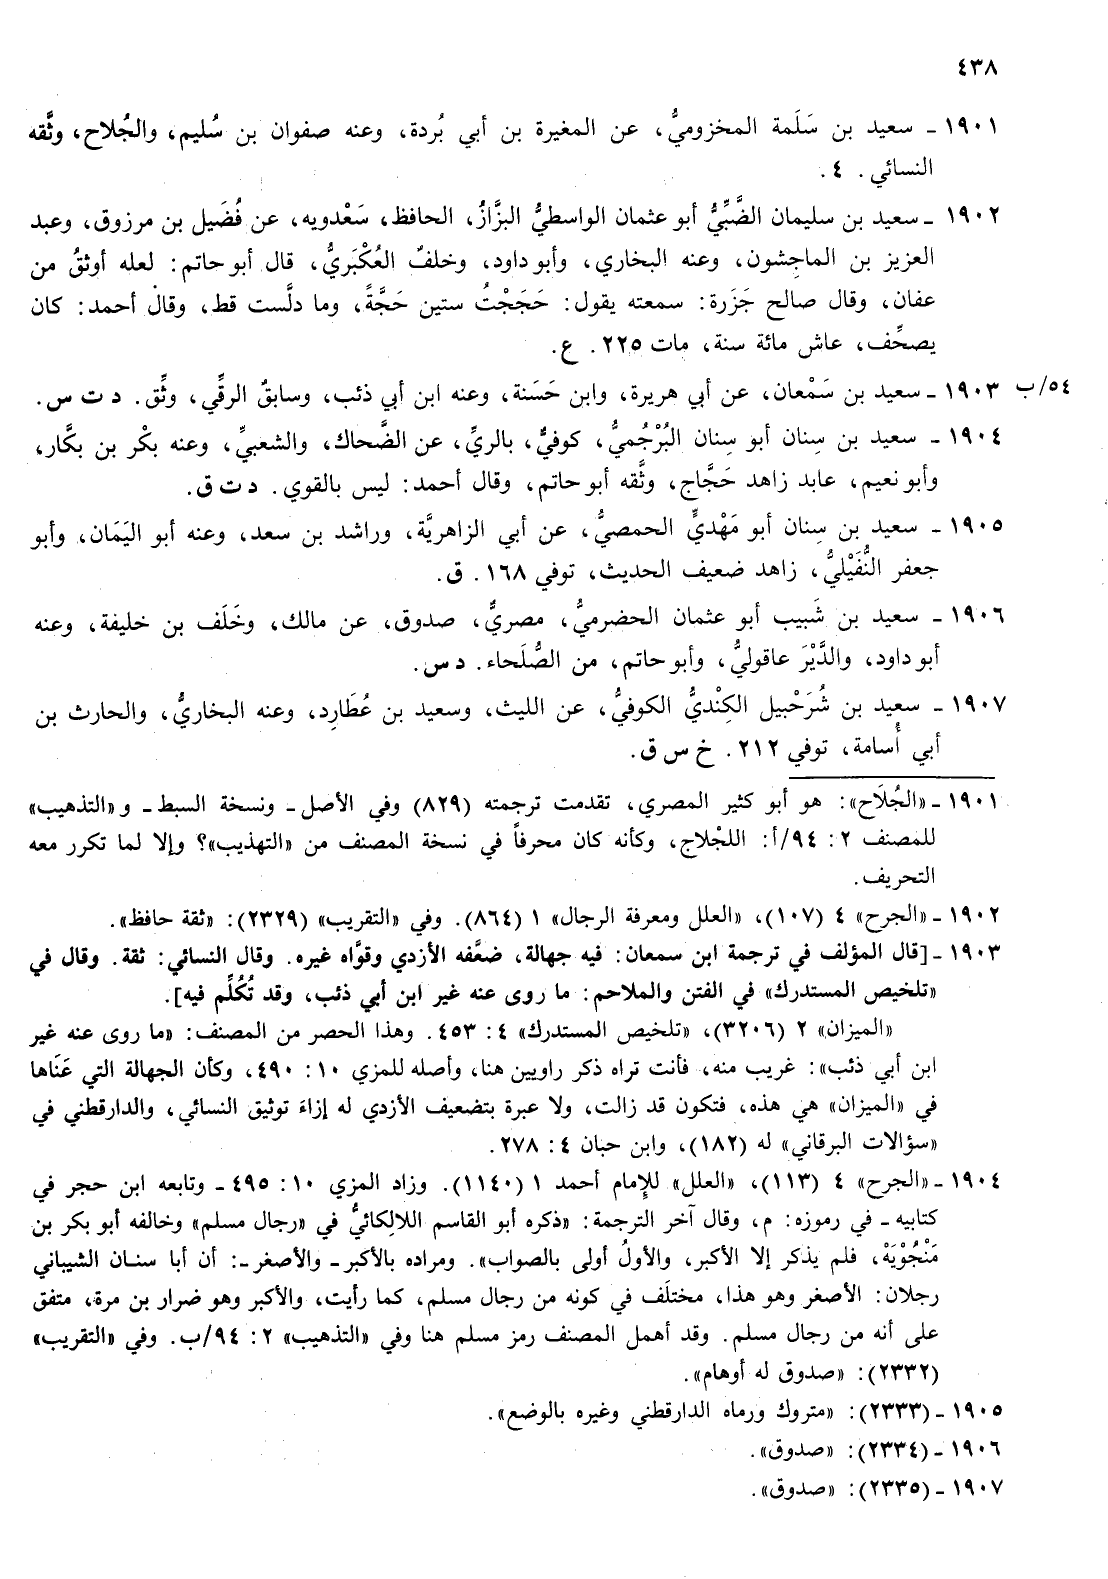 ٤٣٨
١٩٠١ ـ سعيد بن سَلَمة المخزوميُّ، عن المغيرة بن أبي بُردة، وعنه صفوان بن سُليم، والجُلاح، وثَّقه
النسائي. ٤.
١٩٠٢ ـ سعيد بن سليمان الضَّبِّيُّ أبو عثمان الواسطيُّ البزَّازُ، الحافظ، سَعْدويه، عن فُضَيل بن مرزوق، وعبد
العزيز بن الماجِشون، وعنه البخاري، وأبو داود، وخلفٌ العُكْبَريُّ، قال أبو حاتم: لعله أوثقُ من
عفان، وقال صالح جَزَرة: سمعته يقول: حَجَجْتُ ستين حَجَّةً، وما دلَّست قط، وقال أحمد: كان
يصحِّف، عاش مائة سنة، مات ٢٢٥. ع.
١٩٠٣ ـ سعيد بن سَمْعان، عن أبي هريرة، وابن حَسَنة، وعنه ابن أبي ذئب، وسابقٌ الرقِّي، وثِّق. د ت س.
٥٤/ب
١٩٠٤ ـ سعيد بن سِنان أبو سِنان البُرْجُميُّ، كوفيٌّ، بالريِّ، عن الضَّحاك، والشعبيِّ، وعنه بكْر بن بكَّار،
وأبو نعيم، عابد زاهد حَجَّاج، وثَّقه أبو حاتم، وقال أحمد: ليس بالقوي. د ت ق.
١٩٠٥ ـ سعيد بن سِنان أبو مَهْديٍّ الحمصيُّ، عن أبي الزاهريَّة، وراشد بن سعد، وعنه أبو اليَمَان، وأبو
جعفر النُّفَيْليُّ، زاهد ضعيف الحديث، توفي ١٦٨. ق.
١٩٠٦ ـ سعيد بن شَبيب أبو عثمان الحضرميُّ، مصريٌّ، صدوق، عن مالك، وخَلَف بن خليفة، وعنه
أبو داود، والدَّيْرَ عاقوليُّ، وأبو حاتم، من الصُّلَحاء. د س.
١٩٠٧ ـ سعيد بن شُرَحْبيل الكِنْديُّ الكوفيُّ، عن الليث، وسعيد بن عُطَارِد، وعنه البخاريُّ، والحارث بن
أبي أُسامة، توفي ٢١٢. خ س ق.
١٩٠١ ـ «الجُلَاح»: هو أبو كثير المصري، تقدمت ترجمته (٨٢٩) وفي الأصل ـ ونسخة السبط ـ و«التذهيب»
للمصنف ٢: ٩٤/أ: اللجْلاج، وكأنه كان محرفاً في نسخة المصنف من «التهذيب»؟ وإلا لما تكرر معه
التحريف.
١٩٠٢ ـ «الجرح» ٤ (١٠٧)، «العلل ومعرفة الرجال» ١ (٨٦٤). وفي «التقريب» (٢٣٢٩): «ثقة حافظ».
١٩٠٣ ـ [قال المؤلف في ترجمة ابن سمعان: فيه جهالة، ضعَّفه الأزدي وقوَّاه غيره. وقال النسائي: ثقة. وقال في
«تلخيص المستدرك» في الفتن والملاحم: ما روى عنه غير ابن أبي ذئب، وقد تُكُلِّم فيه].
«الميزان» ٢ (٣٢٠٦)، «تلخيص المستدرك» ٤: ٤٥٣. وهذا الحصر من المصنف: «ما روى عنه غير
ابن أبي ذئب»: غريب منه، فأنت تراه ذكر راويين هنا، وأصله للمزي ١٠: ٤٩٠، وكأن الجهالة التي عَنَاها
في «الميزان» هي هذه، فتكون قد زالت، ولا عبرة بتضعيف الأزدي له إزاءَ توثيق النسائي، والدارقطني في
«سؤالات البرقاني» له (١٨٢)، وابن حبان ٤: ٢٧٨.
١٩٠٤ ـ «الجرح» ٤ (١١٣)، «العلل» للإمام أحمد ١ (١١٤٠). وزاد المزي ١٠: ٤٩٥ ـ وتابعه ابن حجر في
كتابيه ـ في رموزه: م، وقال آخر الترجمة: «ذكره أبو القاسم اللالِكائيُّ في «رجال مسلم» وخالفه أبو بكر بن
مَنْجُوْيَهْ، فلم يذكر إلا الأكبر، والأولُ أولى بالصواب». ومراده بالأكبر ـ والأصغر ـ: أن أبا سنان الشيباني
رجلان: الأصغر وهو هذا، مختلَف في كونه من رجال مسلم، كما رأيت، والأكبر وهو ضرار بن مرة، متفق
على أنه من رجال مسلم. وقد أهمل المصنف رمز مسلم هنا وفي «التذهيب» ٢: ٩٤/ب. وفي «التقريب»
(٢٣٣٢): «صدوق له أوهام».
١٩٠٥ ـ (٢٣٣٣): «متروك ورماه الدارقطني وغيره بالوضع».
١٩٠٦ ـ (٢٣٣٤): «صدوق».
١٩٠٧ ـ (٢٣٣٥): «صدوق».